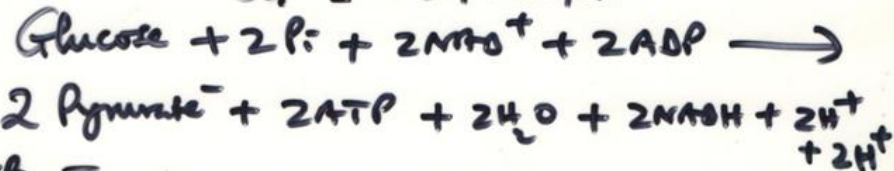 Glucose + 2 Pi + 2NAD⁺ + 2ADP ⟶
2 Pyruvate⁻ + 2ATP + 2H₂O + 2NADH + 2H⁺
+ 2H⁺